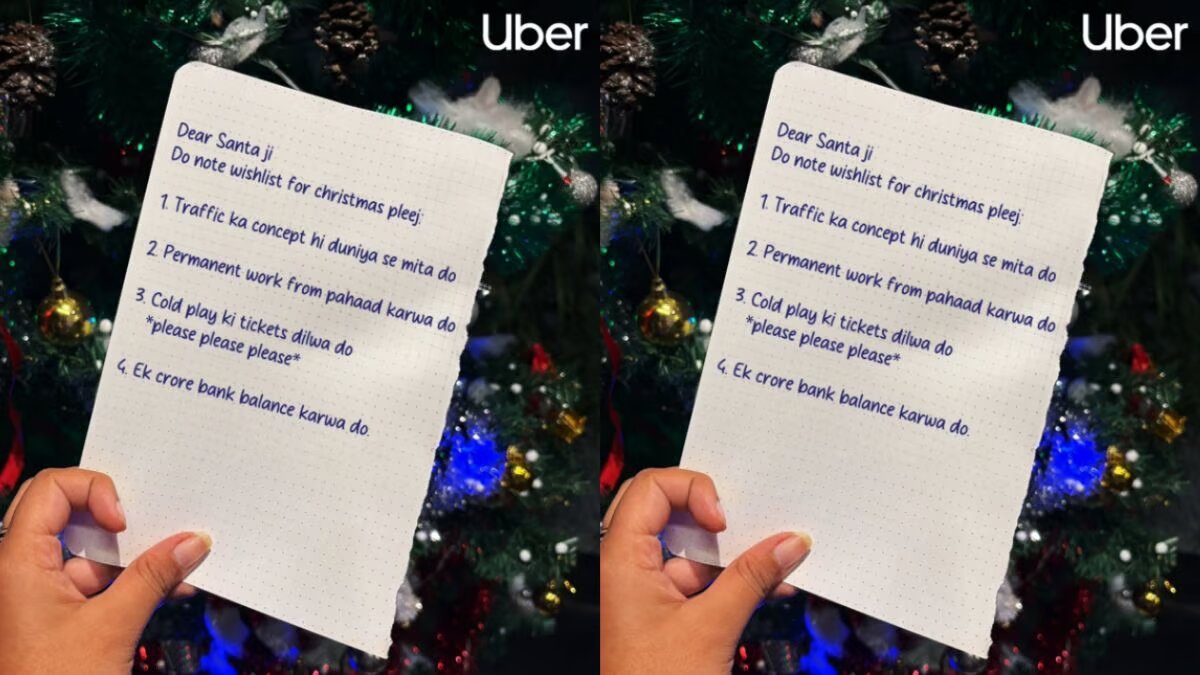 Uber
Dear Santa ji
Do note wishlist for christmas pleej:
1. Traffic ka concept hi duniya se mita do
2. Permanent work from pahaad karwa do
3. Cold play ki tickets dilwa do
*please please please*
4. Ek crore bank balance karwa do.
Uber
Dear Santa ji
Do note wishlist for christmas pleej:
1. Traffic ka concept hi duniya se mita do
2. Permanent work from pahaad karwa do
3. Cold play ki tickets dilwa do
*please please please*
4. Ek crore bank balance karwa do.